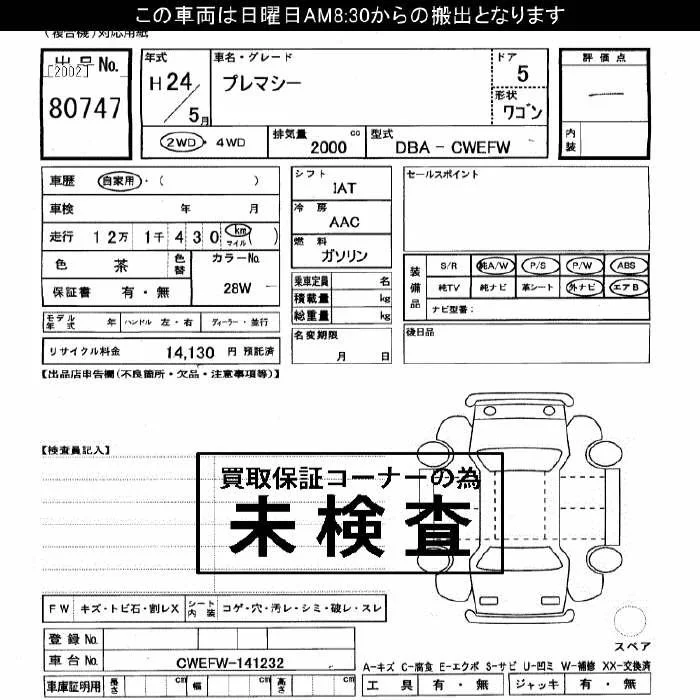 この車両は日曜日AM8:30からの搬出となります
(複合機)対応用紙
出品 No.
[2002]
80747
年式
H24/5月
車名・グレード
プレマシー
ドア
5
形状
ワゴン
2WD・4WD
排気量 cc
2000
型式
DBA－CWEFW
評価点
―
内装
車歴 自家用・( )
車検 年 月
走行 12万 1千 430 km マイル ( )
色 茶 色替
カラーNo.
28W
保証書 有・無
シフト
IAT
冷房
AAC
燃料
ガソリン
乗車定員 名
積載量 kg
総重量 kg
セールスポイント
装備品
S/R 純A/W P/S P/W ABS
純TV 純ナビ 革シート 外ナビ エアB
ナビ型番:
モデル年式 年 ハンドル 左・右 ディーラー・並行
名変期限
月 日
後日品
リサイクル料金 14,130 円 預託済
【出品店申告欄(不良箇所・欠品・注意事項等)】
【検査員記入】
買取保証コーナーの為
未検査
FW キズ・トビ石・割レX シート内装 コゲ・穴・汚レ・シミ・破レ・スレ
登録 No.
車台 No. CWEFW-141232
車庫証明用 長さ cm 幅 cm 高さ cm
スペア
A-キズ C-腐食 E-エクボ S-サビ U-凹ミ W-補修 XX-交換済
工具 有・無 ジャッキ 有・無